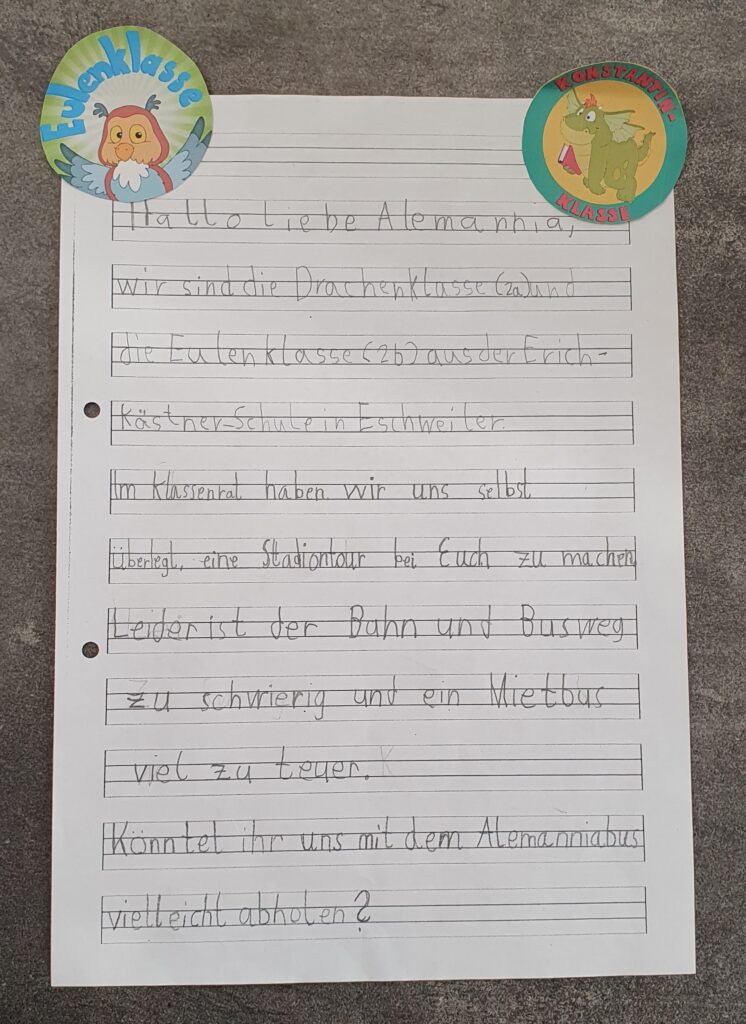 Eulenklasse
KONSTANTIN-
KLASSE
Hallo liebe Alemannia,
wir sind die Drachenklasse (2a) und
die Eulenklasse (2b) aus der Erich-
Kästner-Schule in Eschweiler.
Im Klassenrat haben wir uns selbst
überlegt, eine Stadiontour bei Euch zu machen
Leider ist der Bahn und Busweg
zu schwierig und ein Mietbus
viel zu teuer.
Könntet ihr uns mit dem Alemanniabus
vielleicht abholen?